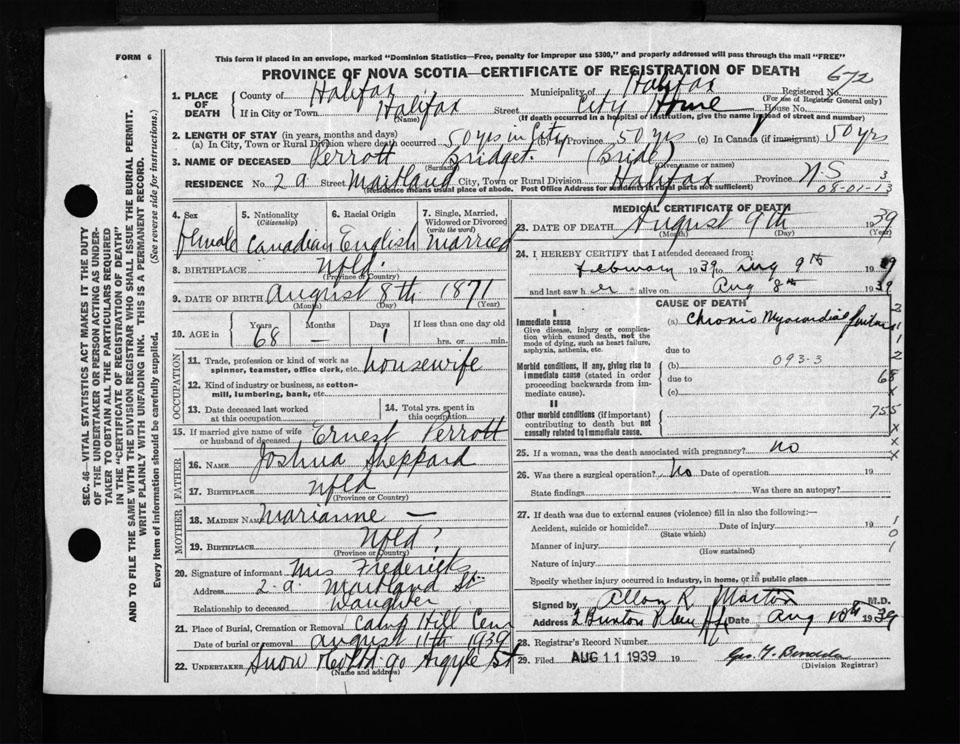 FORM 6
This form if placed in an envelope, marked "Dominion Statistics—Free, penalty for improper use $300," and properly addressed will pass through the mail "FREE"
PROVINCE OF NOVA SCOTIA—CERTIFICATE OF REGISTRATION OF DEATH
672
1. PLACE OF DEATH
County of Halifax Municipality of Halifax Registered No.
(For use of Registrar General only)
If in City or Town Halifax Street City Home House No.
(Name) (If death occurred in a hospital or institution, give the name instead of street and number)
2. LENGTH OF STAY (in years, months and days)
(a) In City, Town or Rural Division where death occurred 50 yrs in City (b) In Province 50 yrs (c) In Canada (if immigrant) 50 yrs
3. NAME OF DECEASED Perrott Bridget (Bride)
(Surname) (Given name or names)
RESIDENCE No. 2a Street Maitland City, Town or Rural Division Halifax Province N.S 3
(Residence means usual place of abode. Post Office Address for residents in rural parts not sufficient) 08-01-13
4. Sex
female
5. Nationality
(Citizenship)
Canadian
6. Racial Origin
English
7. Single, Married, Widowed or Divorced
(write the word)
married
8. BIRTHPLACE Nfld.
(Province or Country)
9. DATE OF BIRTH August 8th 1871
(Month) (Day) (Year)
10. AGE in Years Months Days If less than one day old
68 — 1 hrs. or min.
OCCUPATION
11. Trade, profession or kind of work as spinner, teamster, office clerk, etc. housewife
12. Kind of industry or business, as cotton-mill, lumbering, bank, etc.
13. Date deceased last worked at this occupation
14. Total yrs. spent in this occupation
15. If married give name of wife or husband of deceased Ernest Perrott
FATHER
16. Name Joshua Sheppard
17. Birthplace Nfld
(Province or Country)
MOTHER
18. Maiden Name Marianne —
19. Birthplace Nfld?
(Province or Country)
20. Signature of informant Mrs Fredericks
Address 2-a Maitland St.
Relationship to deceased Daughter
21. Place of Burial, Cremation or Removal Camp Hill Cem
Date of burial or removal August 11th 1939
22. Undertaker Snow & Co Ltd 90 Argyle St
(Name and address)
MEDICAL CERTIFICATE OF DEATH
23. DATE OF DEATH August 9th 1939
(Month) (Day) (Year)
24. I HEREBY CERTIFY that I attended deceased from:
February 1939 to Aug 9th 1939
and last saw her alive on Aug 8th 1939
CAUSE OF DEATH
I
Immediate cause
Give disease, injury or complication which caused death, not the mode of dying, such as heart failure, asphyxia, asthenia, etc.
(a) Chronic Myocardial failure
due to
Morbid conditions, if any, giving rise to immediate cause (stated in order proceeding backwards from immediate cause).
(b) 093-3
due to 68
(c)
II
Other morbid conditions (if important) contributing to death but not causally related to immediate cause.
755
25. If a woman, was the death associated with pregnancy? no
26. Was there a surgical operation? No Date of operation 19
State findings Was there an autopsy?
27. If death was due to external causes (violence) fill in also the following:—
Accident, suicide or homicide? Date of injury 19
(State which)
Manner of injury
(How sustained)
Nature of injury
Specify whether injury occurred in industry, in home, or in public place
Signed by Allan R Morton M.D.
Address Date Aug 10th 1939
28. Registrar's Record Number
29. Filed AUG 11 1939 19
(Division Registrar)
SEC. 46—VITAL STATISTICS ACT MAKES IT THE DUTY
OF THE UNDERTAKER OR PERSON ACTING AS UNDER-
TAKER TO OBTAIN ALL THE PARTICULARS REQUIRED
IN THE "CERTIFICATE OF REGISTRATION OF DEATH"
AND TO FILE THE SAME WITH THE DIVISION REGISTRAR WHO SHALL ISSUE THE BURIAL PERMIT.
WRITE PLAINLY WITH UNFADING INK. THIS IS A PERMANENT RECORD.
Every item of information should be carefully supplied. (See reverse side for instructions.)